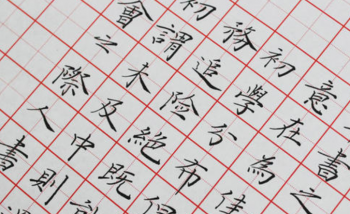 書之
意在為佳
初學分布但
務追險絕既
初謂未及中則
會之際人書